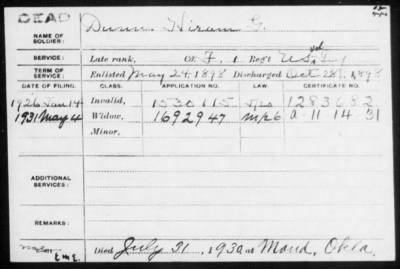 DEAD
NAME OF SOLDIER: Dunn Hiram G.
SERVICE: Late rank, Co F, 1 Reg't U.S.
TERM OF SERVICE: Enlisted May 24, 1898 Discharged Oct 28, 1898
DATE OF FILING. CLASS. APPLICATION NO. LAW. CERTIFICATE NO.
1926 Jan 14 Invalid, 1530115 1283682
1931 May 4 Widow, 1692947 a-11-14-31
Minor,
ADDITIONAL SERVICES:
REMARKS:
Died July 31, 1930 at Maud, Okla.